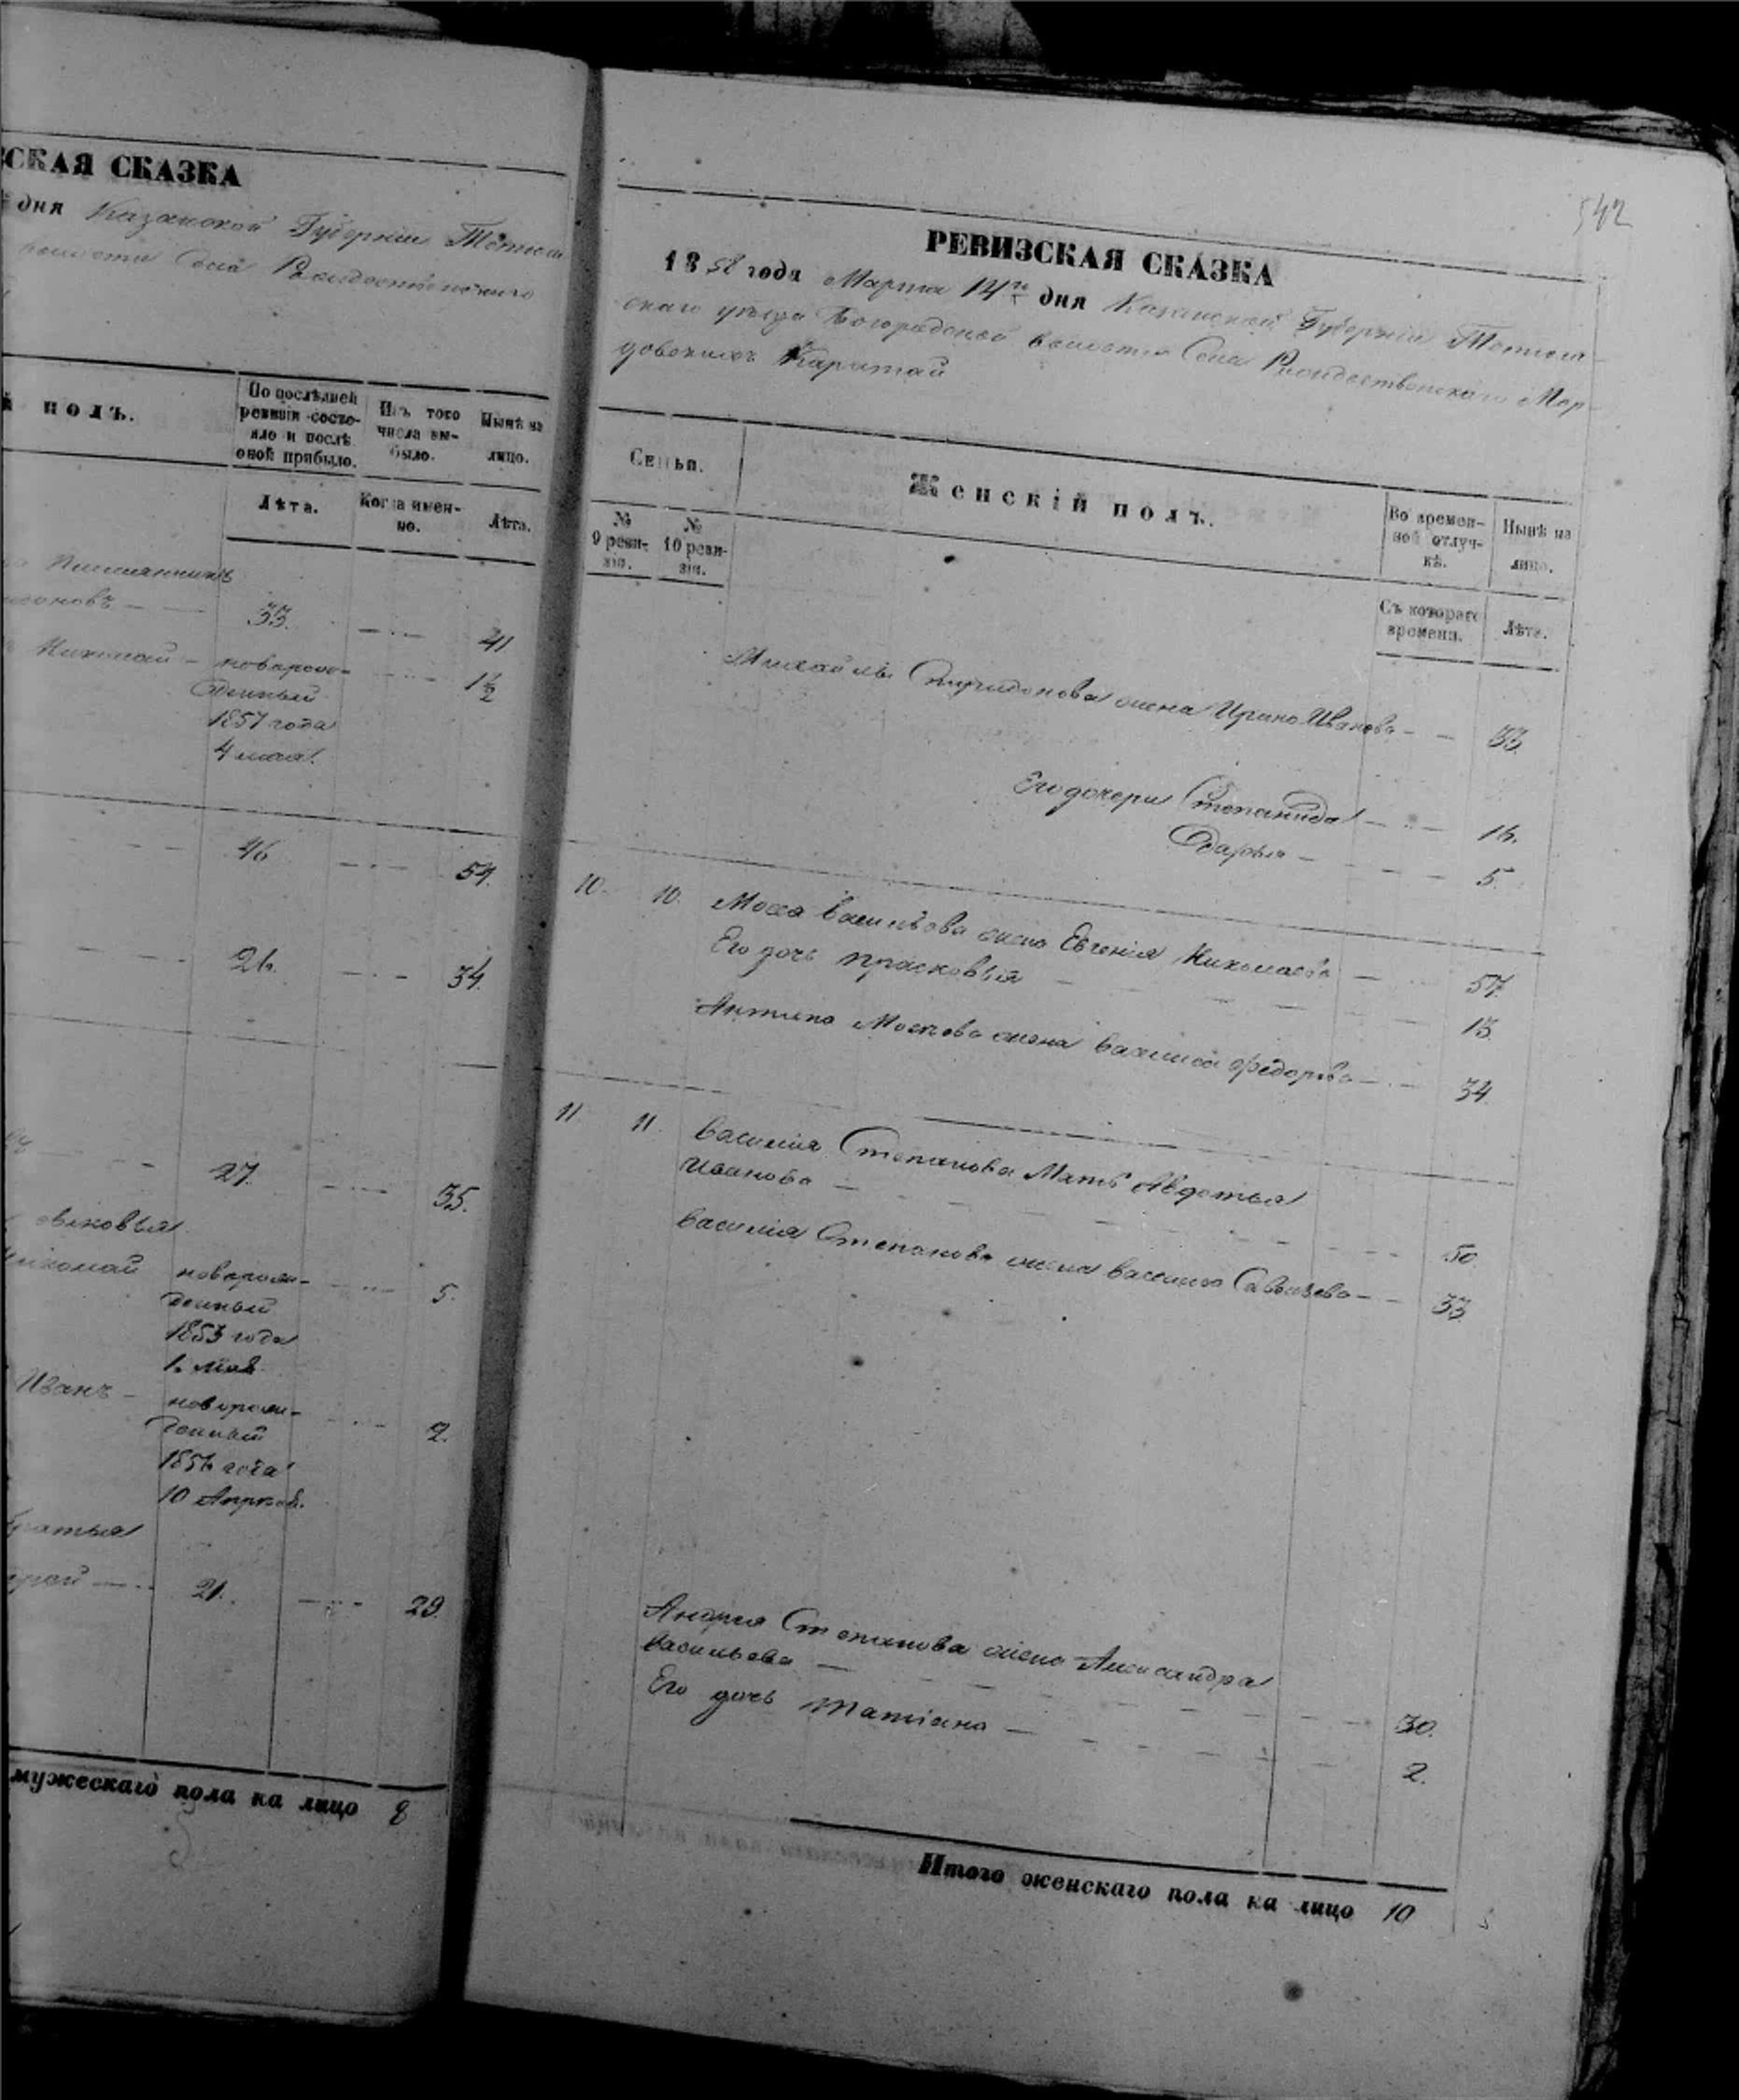 СКАЯ СКАЗКА
дня Казанской Губернiи Тетюш
волости Села Рождественскаго
й полъ.
По послѣдней ревизiи состояло и послѣ оной прибыло.
Изъ того числа выбыло.
Нынѣ на лицо.
Лѣта.
Когда именно.
Лѣта.
Племянникъ
33. 41
Николай - новорож- 1½
денный
1857 года
4 мая.
46 54.
26. 34.
27. 35.
Николай новорож- 5.
денный
1853 года
1. мая
Иванъ - новорож- 2.
денный
1856 года
10 Апреля.
братья
21. 29.
мужескаго пола на лицо 8
542
РЕВИЗСКАЯ СКАЗКА
1858 года Марта 14го дня Казанской Губернiи Тетюш-
скаго уѣзда Богородской волости Села Рождественскаго Мор-
довскихъ Каратай
Семьи.
Женскiй полъ.
Во временной отлучкѣ.
Нынѣ на лицо.
№ 9 ревизiи.
№ 10 ревизiи.
Съ котораго времени.
Лѣта.
Михайлы Спиридонова жена Ирина Иванова - - 33.
Его дочери Степанида - - 16.
Дарья - - - 5.
10. 10. Моса Васильева жена Евгенiя Николаева - 57.
Его дочь Прасковья - - - 13.
Антипа Мосѣева жена Василиса Федорова - - 34.
11. 11. Василiя Степанова Мать Авдотья
Иванова - - - - 50
Василiя Степанова жена Василиса Савельева - - 33.
Андрея Степанова жена Александра
Васильева - - - 30.
Его дочь Татiана - - - 2.
Итого женскаго пола на лицо 10